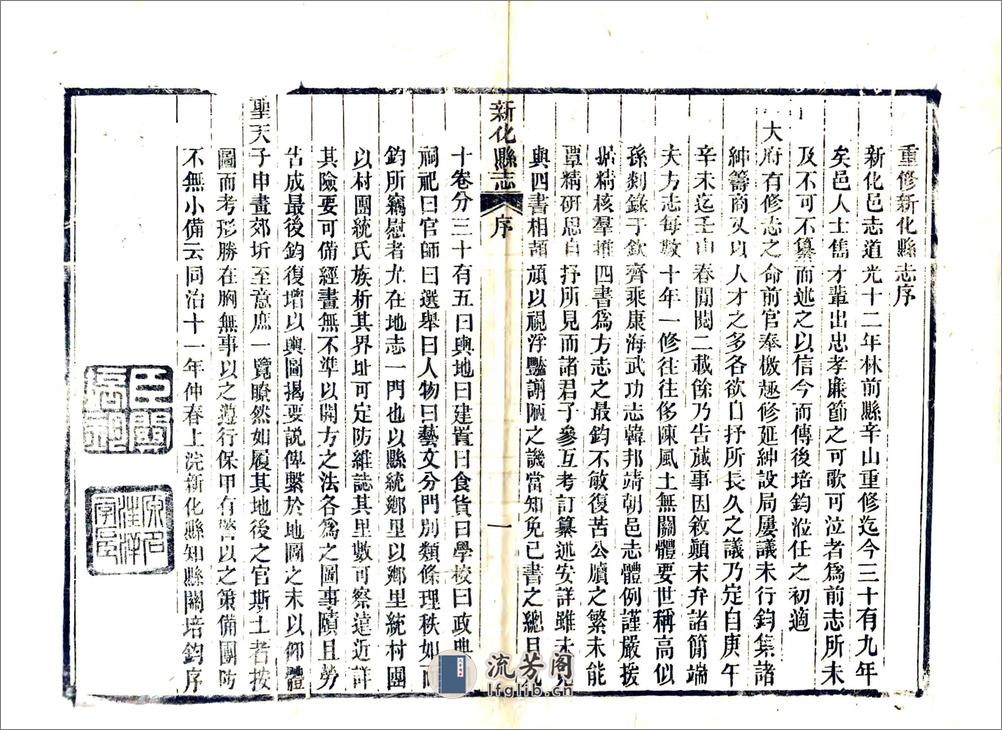 重修新化縣志序
新化邑志道光十二年林前縣辛山重修迄今三十有九年
矣邑人士儁才輩出忠孝廉節之可歌可泣者爲前志所未
及不可不纂而述之以信今而傳後培鈞涖任之初適
大府有修志之命前官奉檄趣修延紳設局屢議未行鈞集諸
紳籌商又以人才之多各欲自抒所長久之議乃定自庚午
辛未迄壬申春閒閱二載餘乃告蕆事因敘顛末弁諸簡端
夫方志每數十年一修往往侈陳風土無關體要世稱高似
孫剡錄于欽齊乘康海武功志韓邦靖朝邑志體例謹嚴援
據精核羣推四書爲方志之最鈞不敏復苦公牘之繁未能
覃精研思自抒所見而諸君子參互考訂纂述安詳雖未
與四書相頡頏以視浮豔謭陋之譏當知免已書之總目
新化縣志
序
一
十卷分三十有五曰輿地曰建置曰食貨曰學校曰政典
祠祀曰官師曰選舉曰人物曰藝文分門別類條理秩如
鈞所竊慰者尤在地志一門也以縣統鄉里以鄉里統村團
以村團統氏族析其界址可定防維誌其里數可察遠近詳
其險要可備經畫無不準以開方之法各爲之圖事賾且勞
告成最後鈞復增以輿圖揭要說俾繫於地圖之末以仰體
聖天子申畫郊圻至意庶一覽瞭然如履其地後之官斯土者按
圖而考形勝在胸無事以之遵行保甲有警以之策備團防
不無小備云同治十一年仲春上浣新化縣知縣關培鈞序
流芳阁
lfglib.cn